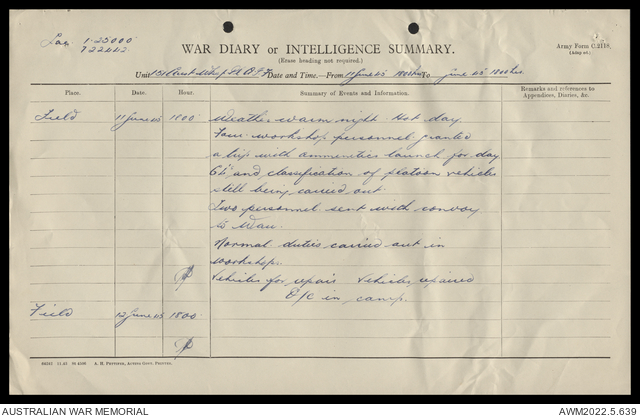 1.25000
722442
WAR DIARY or INTELLIGENCE SUMMARY.
(Erase heading not required.)
Army Form C.2118.
Unit Date and Time.—From 11 June 45 1800hrs To June 45 1800hrs
Place. Date. Hour. Summary of Events and Information. Remarks and references to Appendices, Diaries, &c.
Field 11 June 45 1800 Weather warm night Hot day
Four workshop personnel granted
a trip with ammenities launch for day
and classification of platoon vehicles
still being carried out
Two personnel sent with convoy
to Wau.
Normal duties carried out in
workshops.
Vehicles for repair Vehicles repaired
in camp.
Field 12 June 45 1800
AUSTRALIAN WAR MEMORIAL
AWM2022.5.639